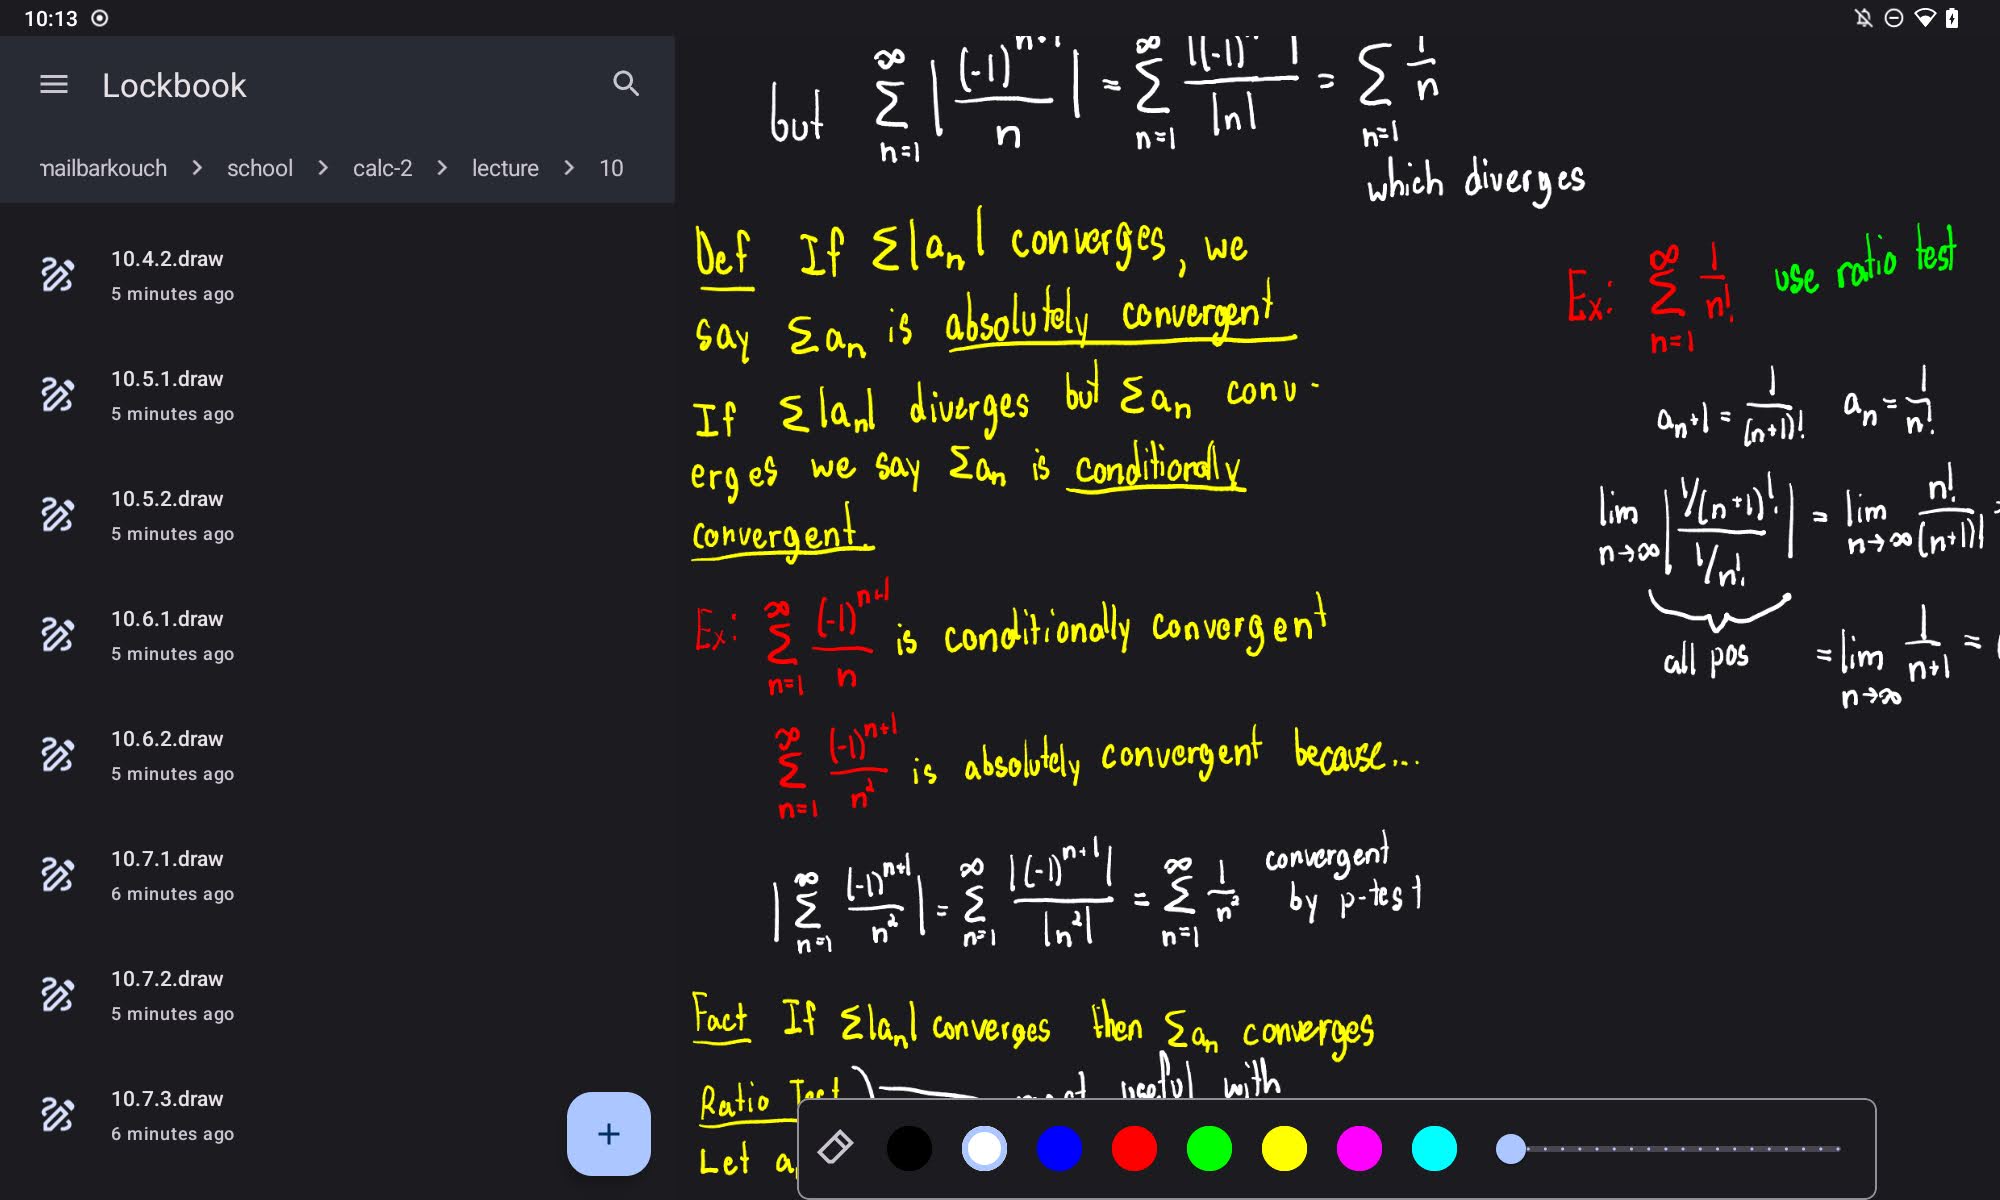 10:13
Lockbook
mailbarkouch > school > calc-2 > lecture > 10
10.4.2.draw
5 minutes ago
10.5.1.draw
5 minutes ago
10.5.2.draw
5 minutes ago
10.6.1.draw
5 minutes ago
10.6.2.draw
5 minutes ago
10.7.1.draw
6 minutes ago
10.7.2.draw
5 minutes ago
10.7.3.draw
6 minutes ago
+
but ∞Σn=1 |(-1)^n+1 / n| = ∞Σn=1 |(-1)^n | / |n| = Σn=1 1/n
which diverges
Def If Σ|an| converges, we
say Σan is absolutely convergent
If Σ|an| diverges but Σan conv-
erges we say Σan is conditionally
convergent.
Ex: ∞Σn=1 (-1)^n+1 / n is conditionally convergent
∞Σn=1 (-1)^n+1 / n² is absolutely convergent because...
|∞Σn=1 (-1)^n+1 / n²| = ∞Σn=1 |(-1)^n+1| / |n²| = ∞Σn=1 1/n² convergent
by p-test
Fact If Σ|an| converges then Σan converges
Ratio Test useful with
Let a
Ex: ∞Σn=1 1/n! use ratio test
an+1 = 1/(n+1)! an = 1/n!
lim n→∞ |1/(n+1)! / 1/n!| = lim n→∞ n!/(n+1)! =
all pos = lim n→∞ 1/n+1 =